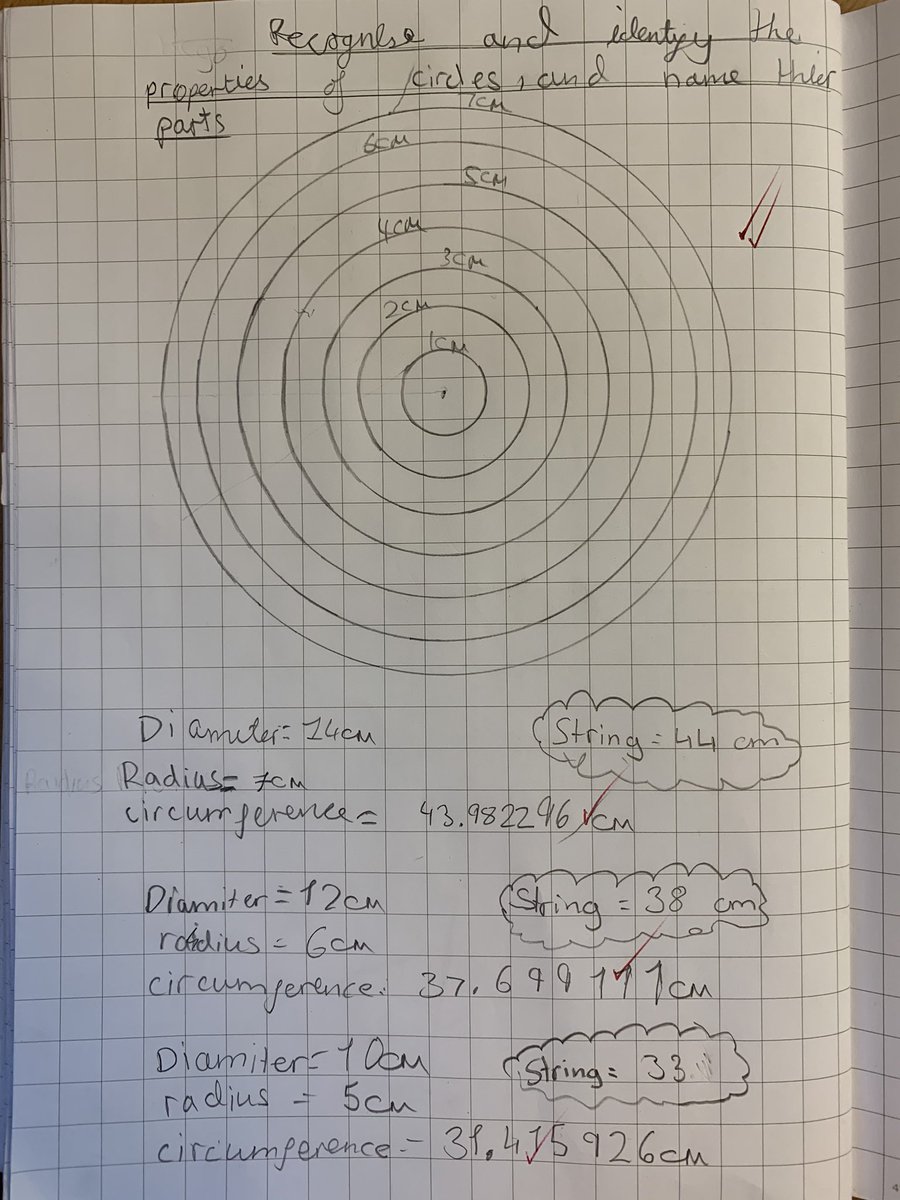 Recognise and identify the
properties of circles, and name thier
parts
7cm
6cm
5cm
4cm
3cm
2cm
1cm
Diameter= 14cm
String = 44 cm
Radius= 7cm
circumference = 43.982296 cm
Diamiter = 12cm
String = 38 cm
radius = 6cm
circumference. 37.699111cm
Diamiter = 10cm
String = 33
radius = 5cm
circumference = 31.415926cm